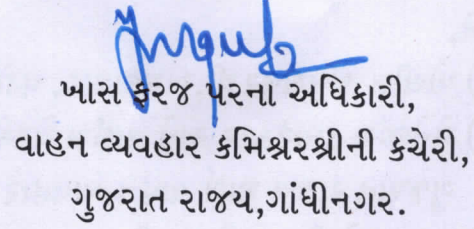 ખાસ ફરજ પરના અધિકારી,
વાહન વ્યવહાર કમિશ્નરશ્રીની કચેરી,
ગુજરાત રાજય,ગાંધીનગર.